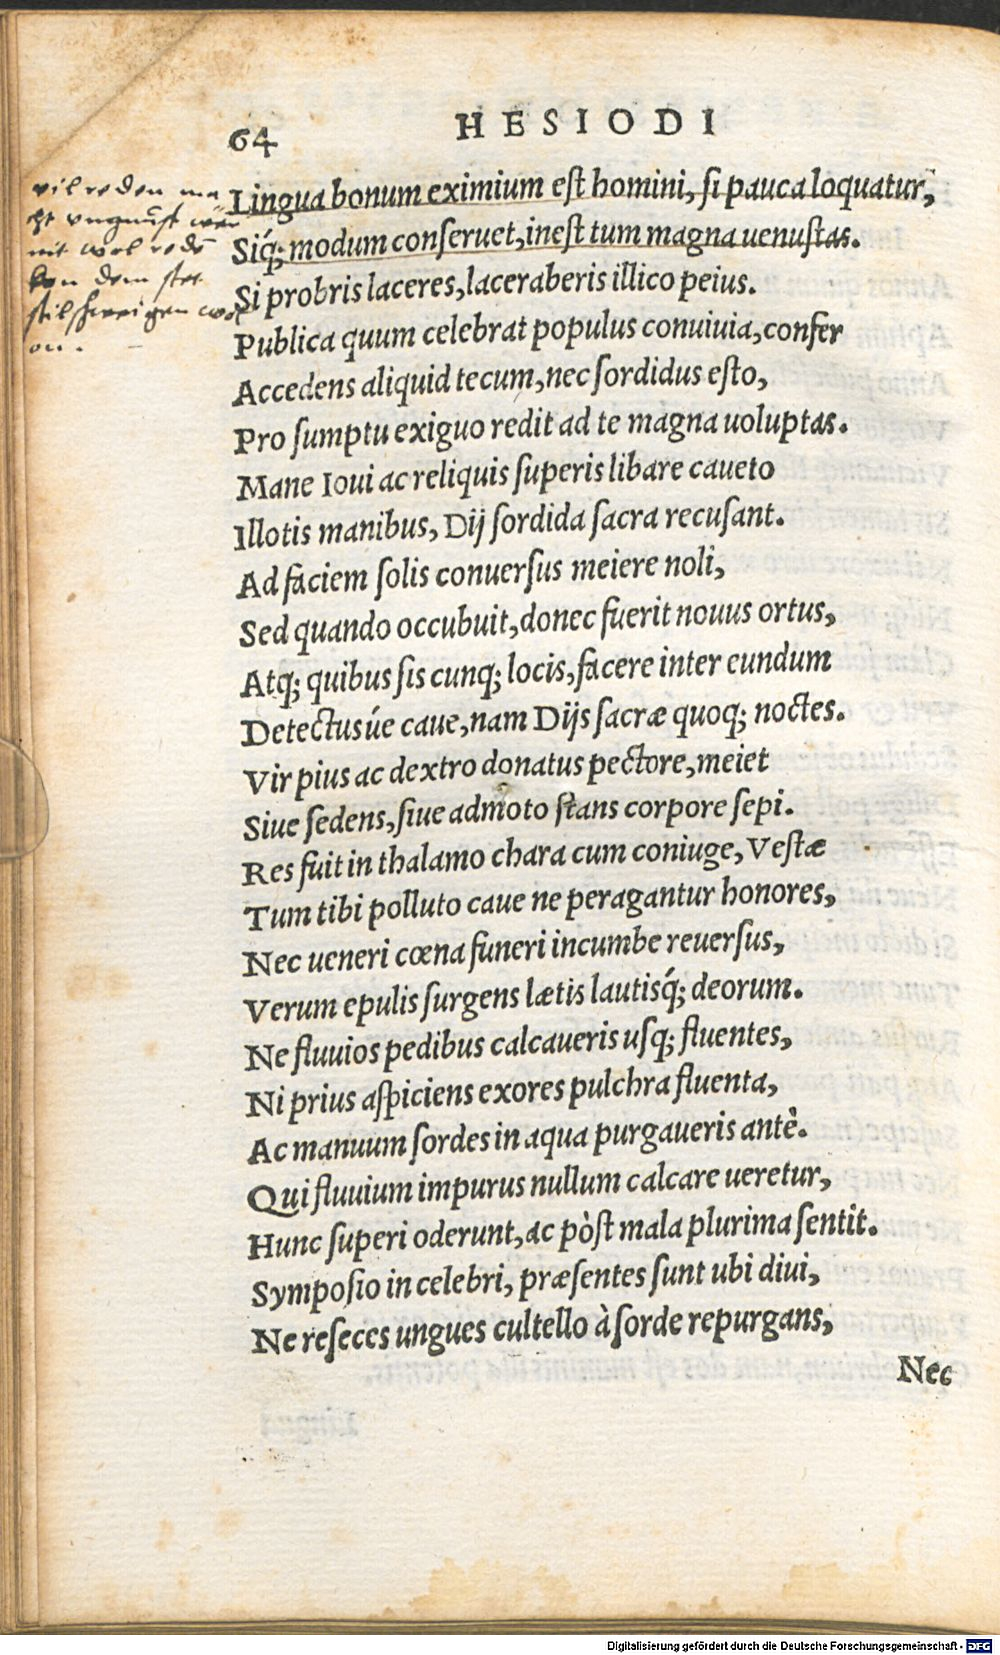 64 HESIODI
vil reden ma
cht vngunst wer
nit wol redē
kan dem stet
stilschweigen wol
an.
Lingua bonum eximium est homini, si pauca loquatur,
Siq́; modum conseruet, inest tum magna uenustas.
Si probris laceres, laceraberis illico peius.
Publica quum celebrat populus conuiuia, confer
Accedens aliquid tecum, nec sordidus esto,
Pro sumptu exiguo redit ad te magna uoluptas.
Mane Ioui ac reliquis superis libare caueto
Illotis manibus, Dij sordida sacra recusant.
Ad faciem solis conuersus meiere noli,
Sed quando occubuit, donec fuerit nouus ortus,
Atq; quibus sis cunq; locis, facere inter eundum
Detectusúe caue, nam Dijs sacræ quoq; noctes.
Vir pius ac dextro donatus pectore, meiet
Siue sedens, siue admoto stans corpore sepi.
Res fuit in thalamo chara cum coniuge, Vestæ
Tum tibi polluto caue ne peragantur honores,
Nec ueneri cœna funeri incumbe reuersus,
Verum epulis surgens lætis lautisq́; deorum.
Ne fluuios pedibus calcaueris usq; fluentes,
Ni prius aspiciens exores pulchra fluenta,
Ac manuum sordes in aqua purgaueris antè.
Qui fluuium impurus nullum calcare ueretur,
Hunc superi oderunt, ac pòst mala plurima sentit.
Symposio in celebri, præsentes sunt ubi diui,
Ne reseces ungues cultello à sorde repurgans,
Nec
Digitalisierung gefördert durch die Deutsche Forschungsgemeinschaft - DFG